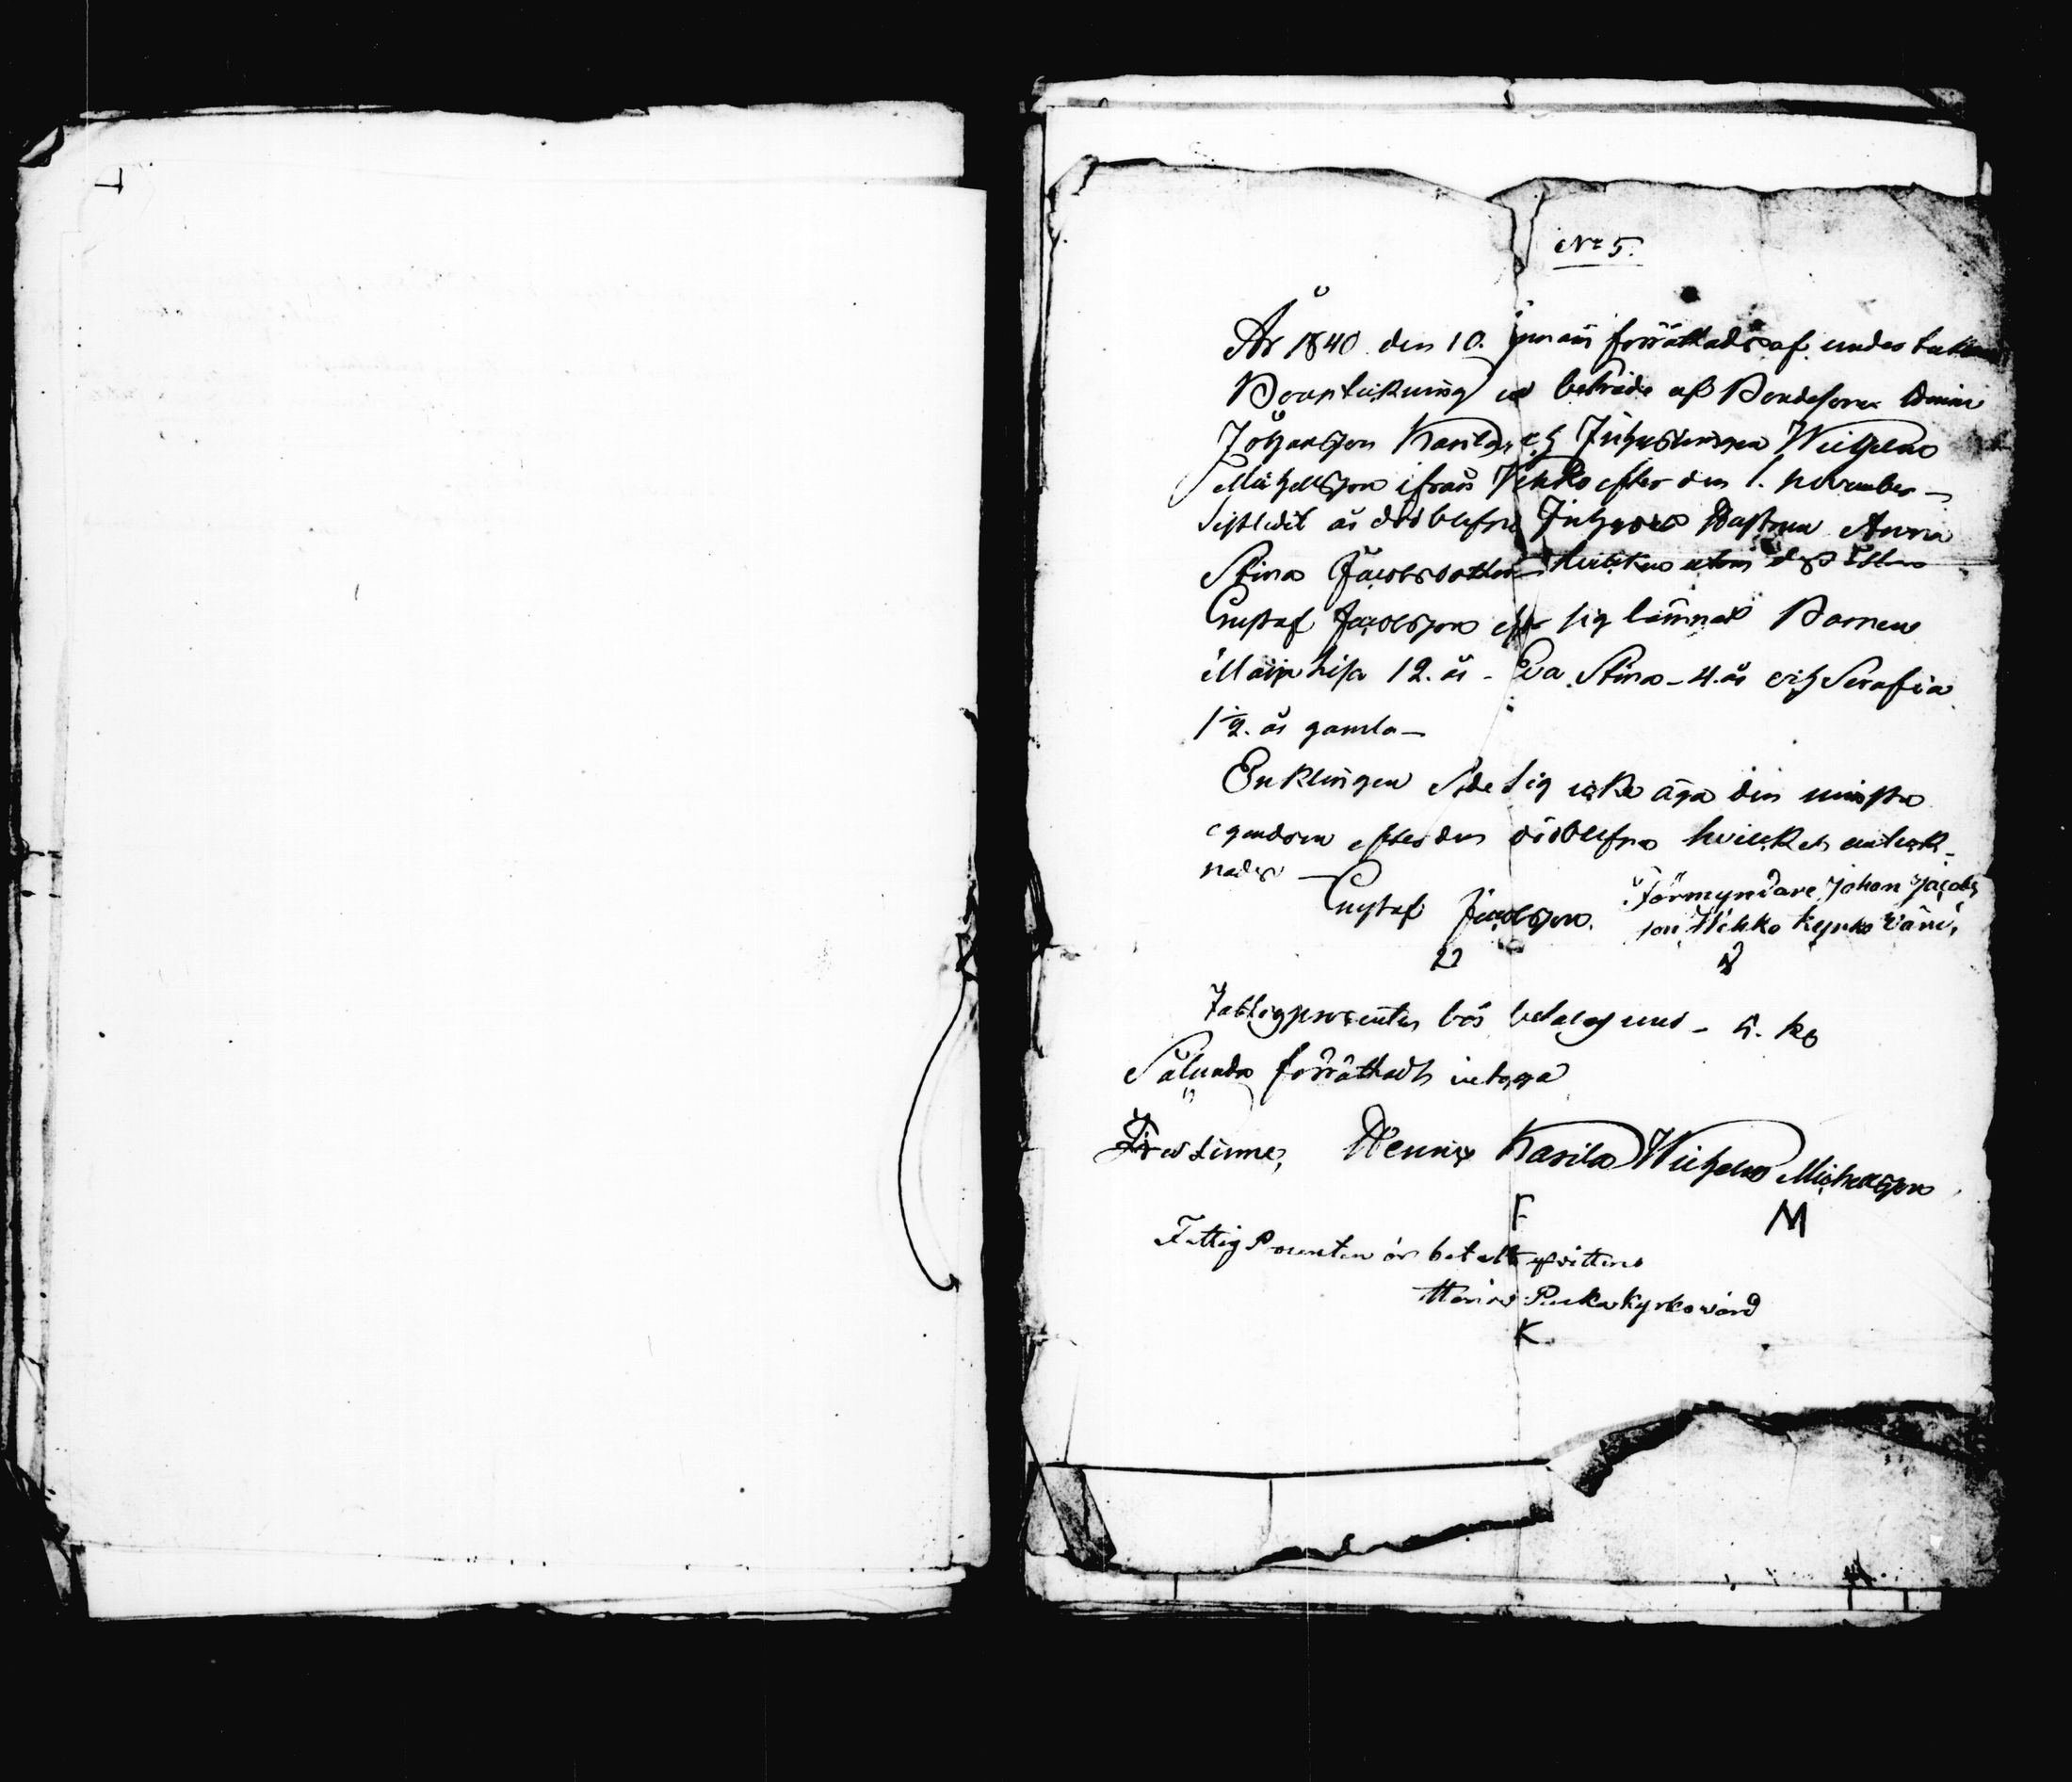 No 5.
År 1840 den 10. Januari förrättades af undertecknad
Bouptekning i beträde af Bondesonen Henric
Johansson Karila och Inhyseskarlen Wilhelm
Michelsson ifrån Wihko efter den 1. november
sistledit år dödblefne Inhyses Hustrun Anna
Stina Jacobsdotter hvilken utom dess Ehm
Gustaf Jacobsson efter sig lämnat Barnen
Maija Lisa 12. år - Eva Stina - 4. år och Serafia
1 1/2. år gamla -
Enklingen Sade sig icke äga den minsta
egendom efter den dödblefna hvilket anteck-
nades -
Gustaf Jacobsson. Förmyndare Johan Jacobs
son Wihko kyrko värd,
Fattigprocenten bör betalas med - 5. ko
Sålunda förrättadt intyga
Henric Karila Wilhelm Michelsson
F M
Fattig Procenten är betalt qvitteras
Puska kyrkovärd
K